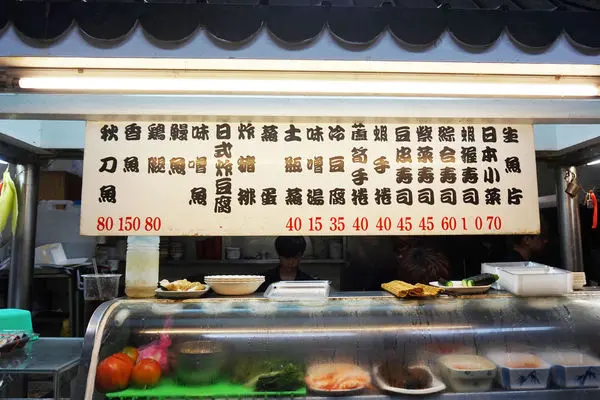 生魚片
日本小菜
蝦握壽司
綜合壽司
紫菜壽司
豆皮壽司
蝦手捲
蘆筍手捲
冷豆腐
味噌湯
土瓶蒸
蒸蛋
炸豬排
日式炸豆腐
味噌魚
鰻魚
鷄腿
香魚
秋刀魚
80 150 80 40 15 35 40 40 40 45 45 60 1 0 70